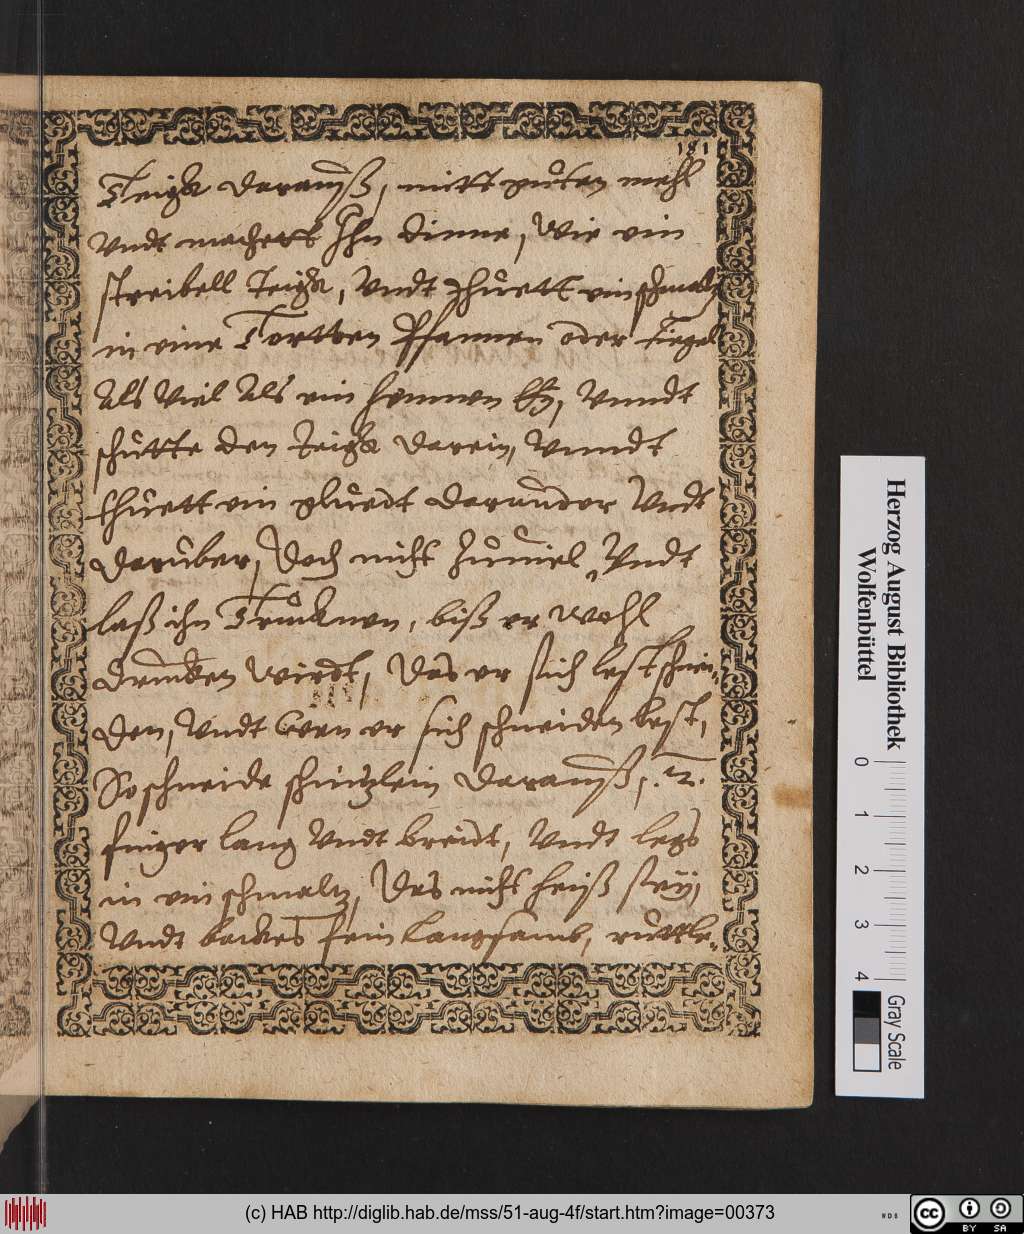 181
Teigk darauß, mitt guten mehl
Vndt machett Ihn dinne, Wie ein
streibell Teigk, Vndt thuett ein schmaltz
in eine Tortten Pfannen oder Tiegel
Als Viel Als ein hennen Ey, Vnndt
schutte den Teigk darein, Vnndt
thuett ein gluedt darunder Vndt
daruber, Doch nicht Zuuiel, Vndt
laß ihn Trucknen, biß er Wohl
drucken Wirdt, Das er sich lest schnei-
den, Vndt Gern er sich schneiden lest,
So schneide schnitzlein darauß, 2.
finger lang Vndt breidt, Vndt legs
in ein schmaltz, Das nicht heiß sey,
Vndt backes fein langsamb, ruttle-
Herzog August Bibliothek
Wolfenbüttel
0 1 2 3 4 Gray Scale
(c) HAB http://diglib.hab.de/mss/51-aug-4f/start.htm?image=00373
WDB
cc BY SA